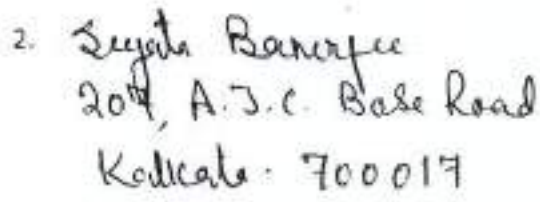 2. Sujata Banerjee
207, A.J.C. Bose Road
Kolkata - 700017